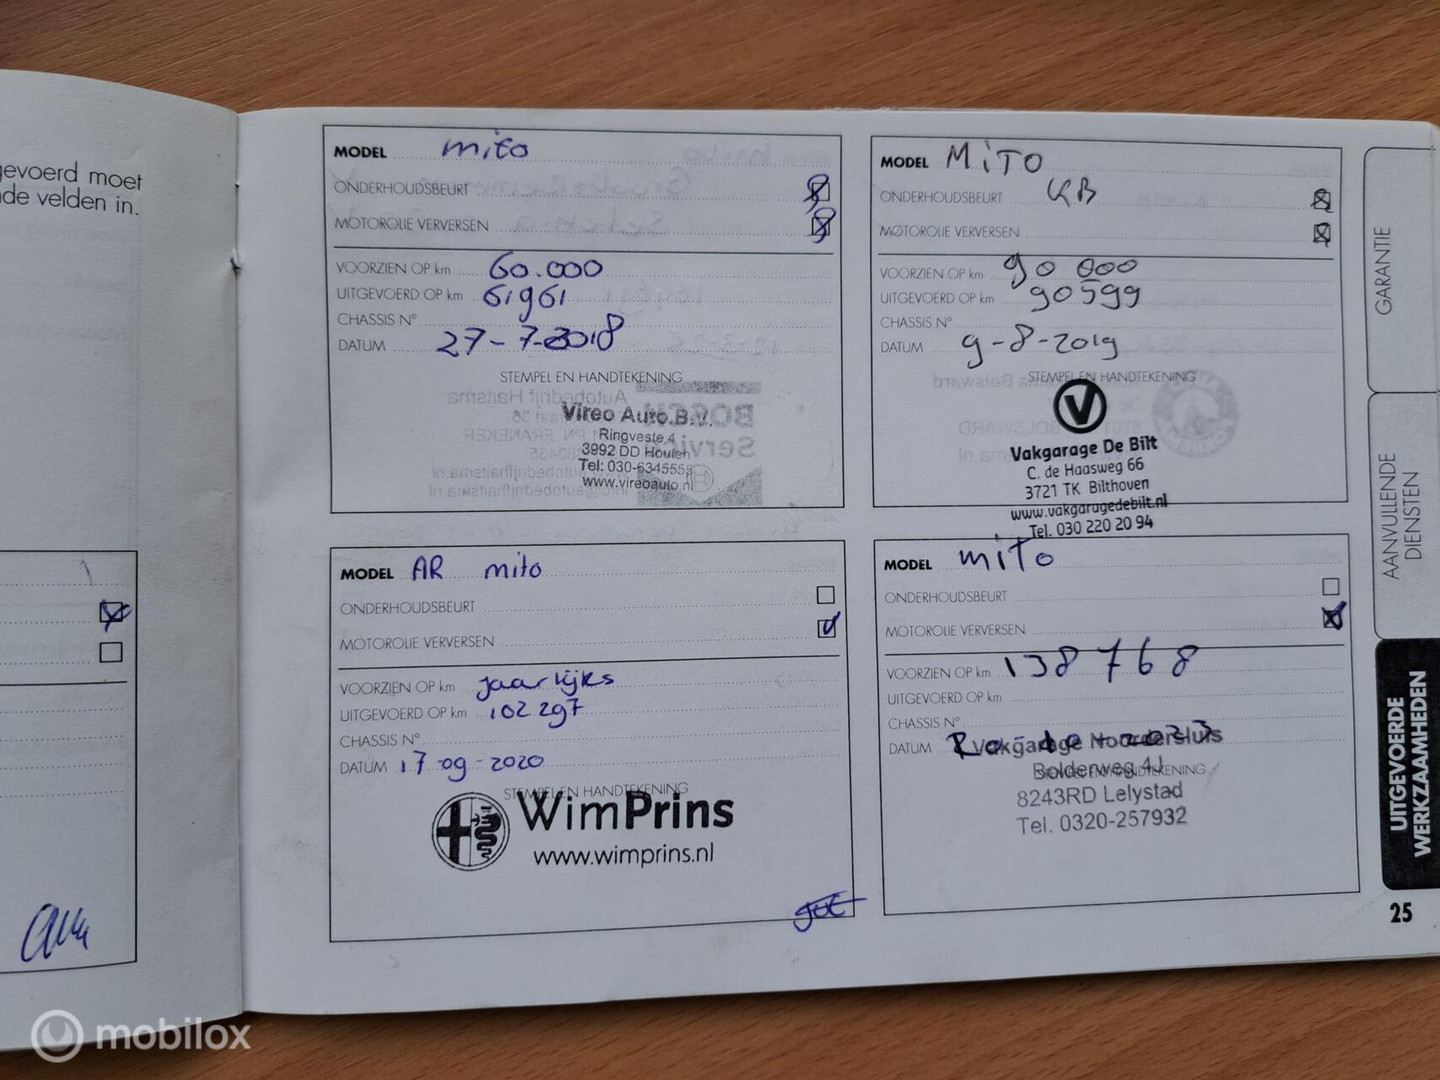 gevoerd moet
nde velden in.
MODEL mito
ONDERHOUDSBEURT
MOTOROLIE VERVERSEN
VOORZIEN OP km 60.000
UITGEVOERD OP km 61961
CHASSIS N°
DATUM 27-7-2018
STEMPEL EN HANDTEKENING
Vireo Auto B.V.
Ringveste 4
3992 DD Houten
Tel: 030-6345555
www.vireoauto.nl
MODEL MiTO
ONDERHOUDSBEURT KB
MOTOROLIE VERVERSEN
VOORZIEN OP km 90 000
UITGEVOERD OP km 90599
CHASSIS N°
DATUM 9-8-2019
STEMPEL EN HANDTEKENING
Vakgarage De Bilt
C. de Haasweg 66
3721 TK Bilthoven
www.vakgaragedebilt.nl
Tel. 030 220 20 94
MODEL AR mito
ONDERHOUDSBEURT
MOTOROLIE VERVERSEN
VOORZIEN OP km jaarlijks
UITGEVOERD OP km 102 297
CHASSIS N°
DATUM 17-09-2020
STEMPEL EN HANDTEKENING
WimPrins
www.wimprins.nl
MODEL mito
ONDERHOUDSBEURT
MOTOROLIE VERVERSEN
VOORZIEN OP km 138768
UITGEVOERD OP km
CHASSIS N°
DATUM
Vakgarage Noordersluis
Bolderweg 4J
8243RD Lelystad
Tel. 0320-257932
GARANTIE
AANVULLENDE
DIENSTEN
UITGEVOERDE
WERKZAAMHEDEN
25
mobilox